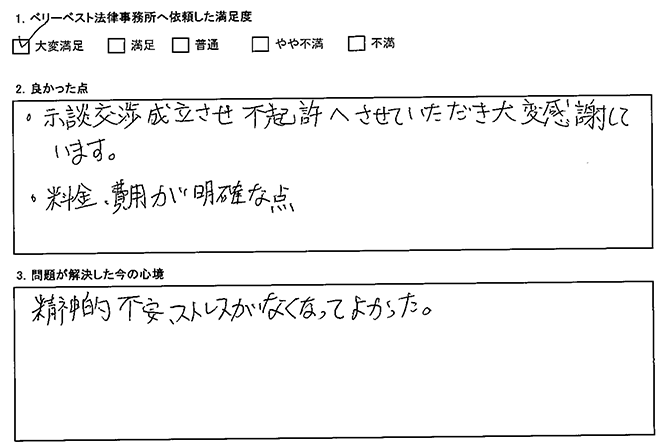 1. ベリーベスト法律事務所へ依頼した満足度
☑ 大変満足 □ 満足 □ 普通 □ やや不満 □ 不満
2. 良かった点
・示談交渉成立させ不起許へさせていただき大変感謝して
います。
・料金、費用が明確な点
3. 問題が解決した今の心境
精神的不安、ストレスがなくなってよかった。